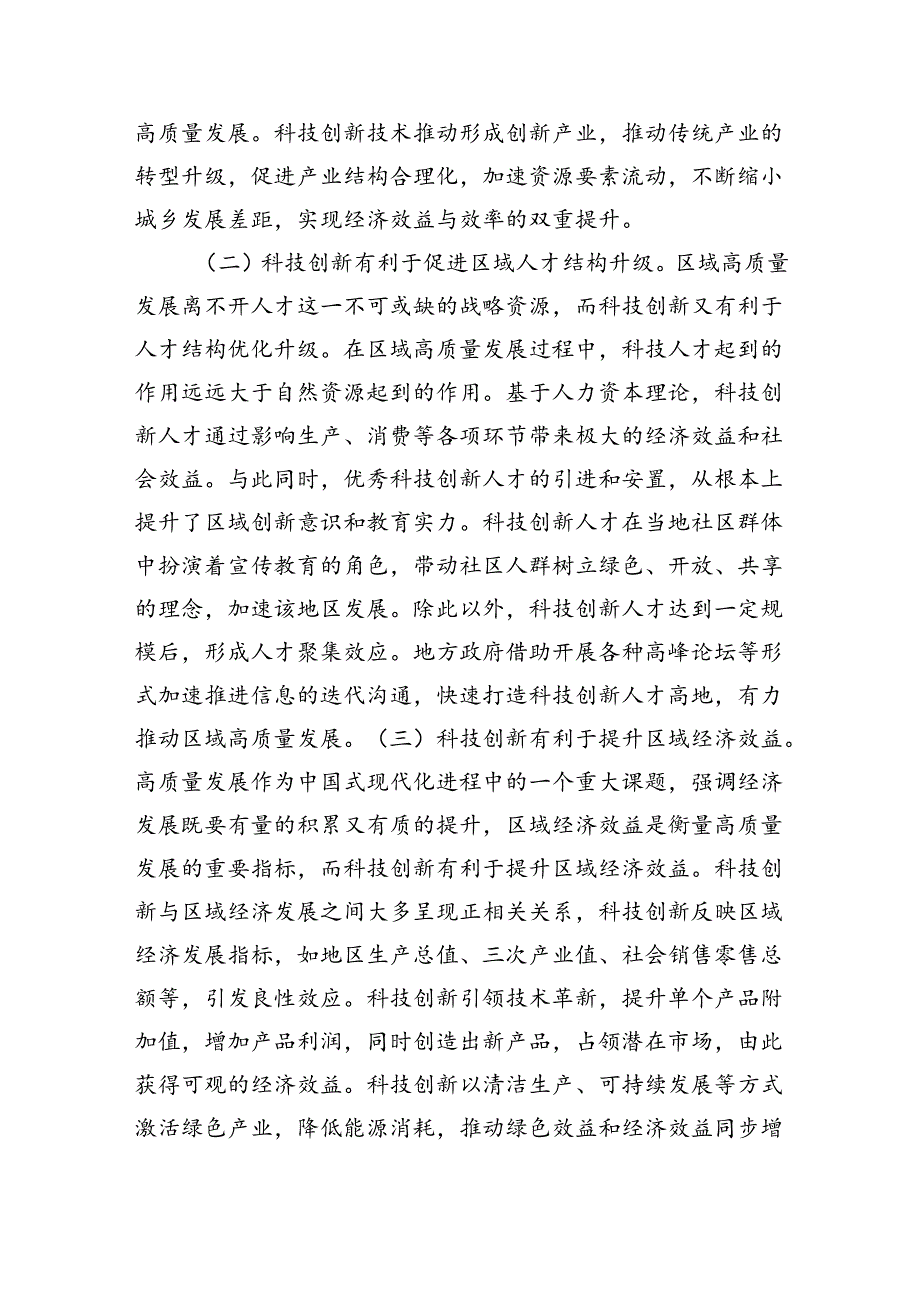 高质量发展。科技创新技术推动形成创新产业，推动传统产业的
转型升级，促进产业结构合理化，加速资源要素流动，不断缩小
城乡发展差距，实现经济效益与效率的双重提升。
（二）科技创新有利于促进区域人才结构升级。区域高质量
发展离不开人才这一不可或缺的战略资源，而科技创新又有利于
人才结构优化升级。在区域高质量发展过程中，科技人才起到的
作用远远大于自然资源起到的作用。基于人力资本理论，科技创
新人才通过影响生产、消费等各项环节带来极大的经济效益和社
会效益。与此同时，优秀科技创新人才的引进和安置，从根本上
提升了区域创新意识和教育实力。科技创新人才在当地社区群体
中扮演着宣传教育的角色，带动社区人群树立绿色、开放、共享
的理念，加速该地区发展。除此以外，科技创新人才达到一定规
模后，形成人才聚集效应。地方政府借助开展各种高峰论坛等形
式加速推进信息的迭代沟通，快速打造科技创新人才高地，有力
推动区域高质量发展。（三）科技创新有利于提升区域经济效益。
高质量发展作为中国式现代化进程中的一个重大课题，强调经济
发展既要有量的积累又有质的提升，区域经济效益是衡量高质量
发展的重要指标，而科技创新有利于提升区域经济效益。科技创
新与区域经济发展之间大多呈现正相关关系，科技创新反映区域
经济发展指标，如地区生产总值、三次产业值、社会销售零售总
额等，引发良性效应。科技创新引领技术革新，提升单个产品附
加值，增加产品利润，同时创造出新产品，占领潜在市场，由此
获得可观的经济效益。科技创新以清洁生产、可持续发展等方式
激活绿色产业，降低能源消耗，推动绿色效益和经济效益同步增